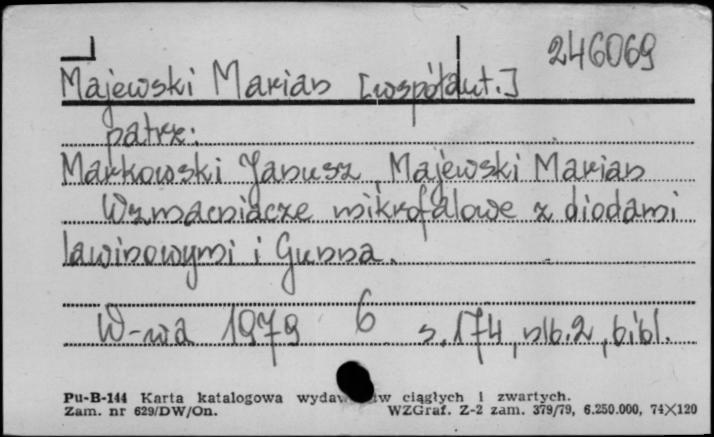 246069
Majewski Marian [współaut.]
patrz:
Markowski Janusz, Majewski Marian
Wzmacniacze mikrofalowe z diodami
lawinowymi i Gunna.
W-wa 1979 6 s. 174, nlb. 2, bibl.
Pu-B-144 Karta katalogowa wydaw ciągłych i zwartych.
Zam. nr 629/DW/On. WZGraf. Z-2 zam. 379/79, 6.250.000, 74×120